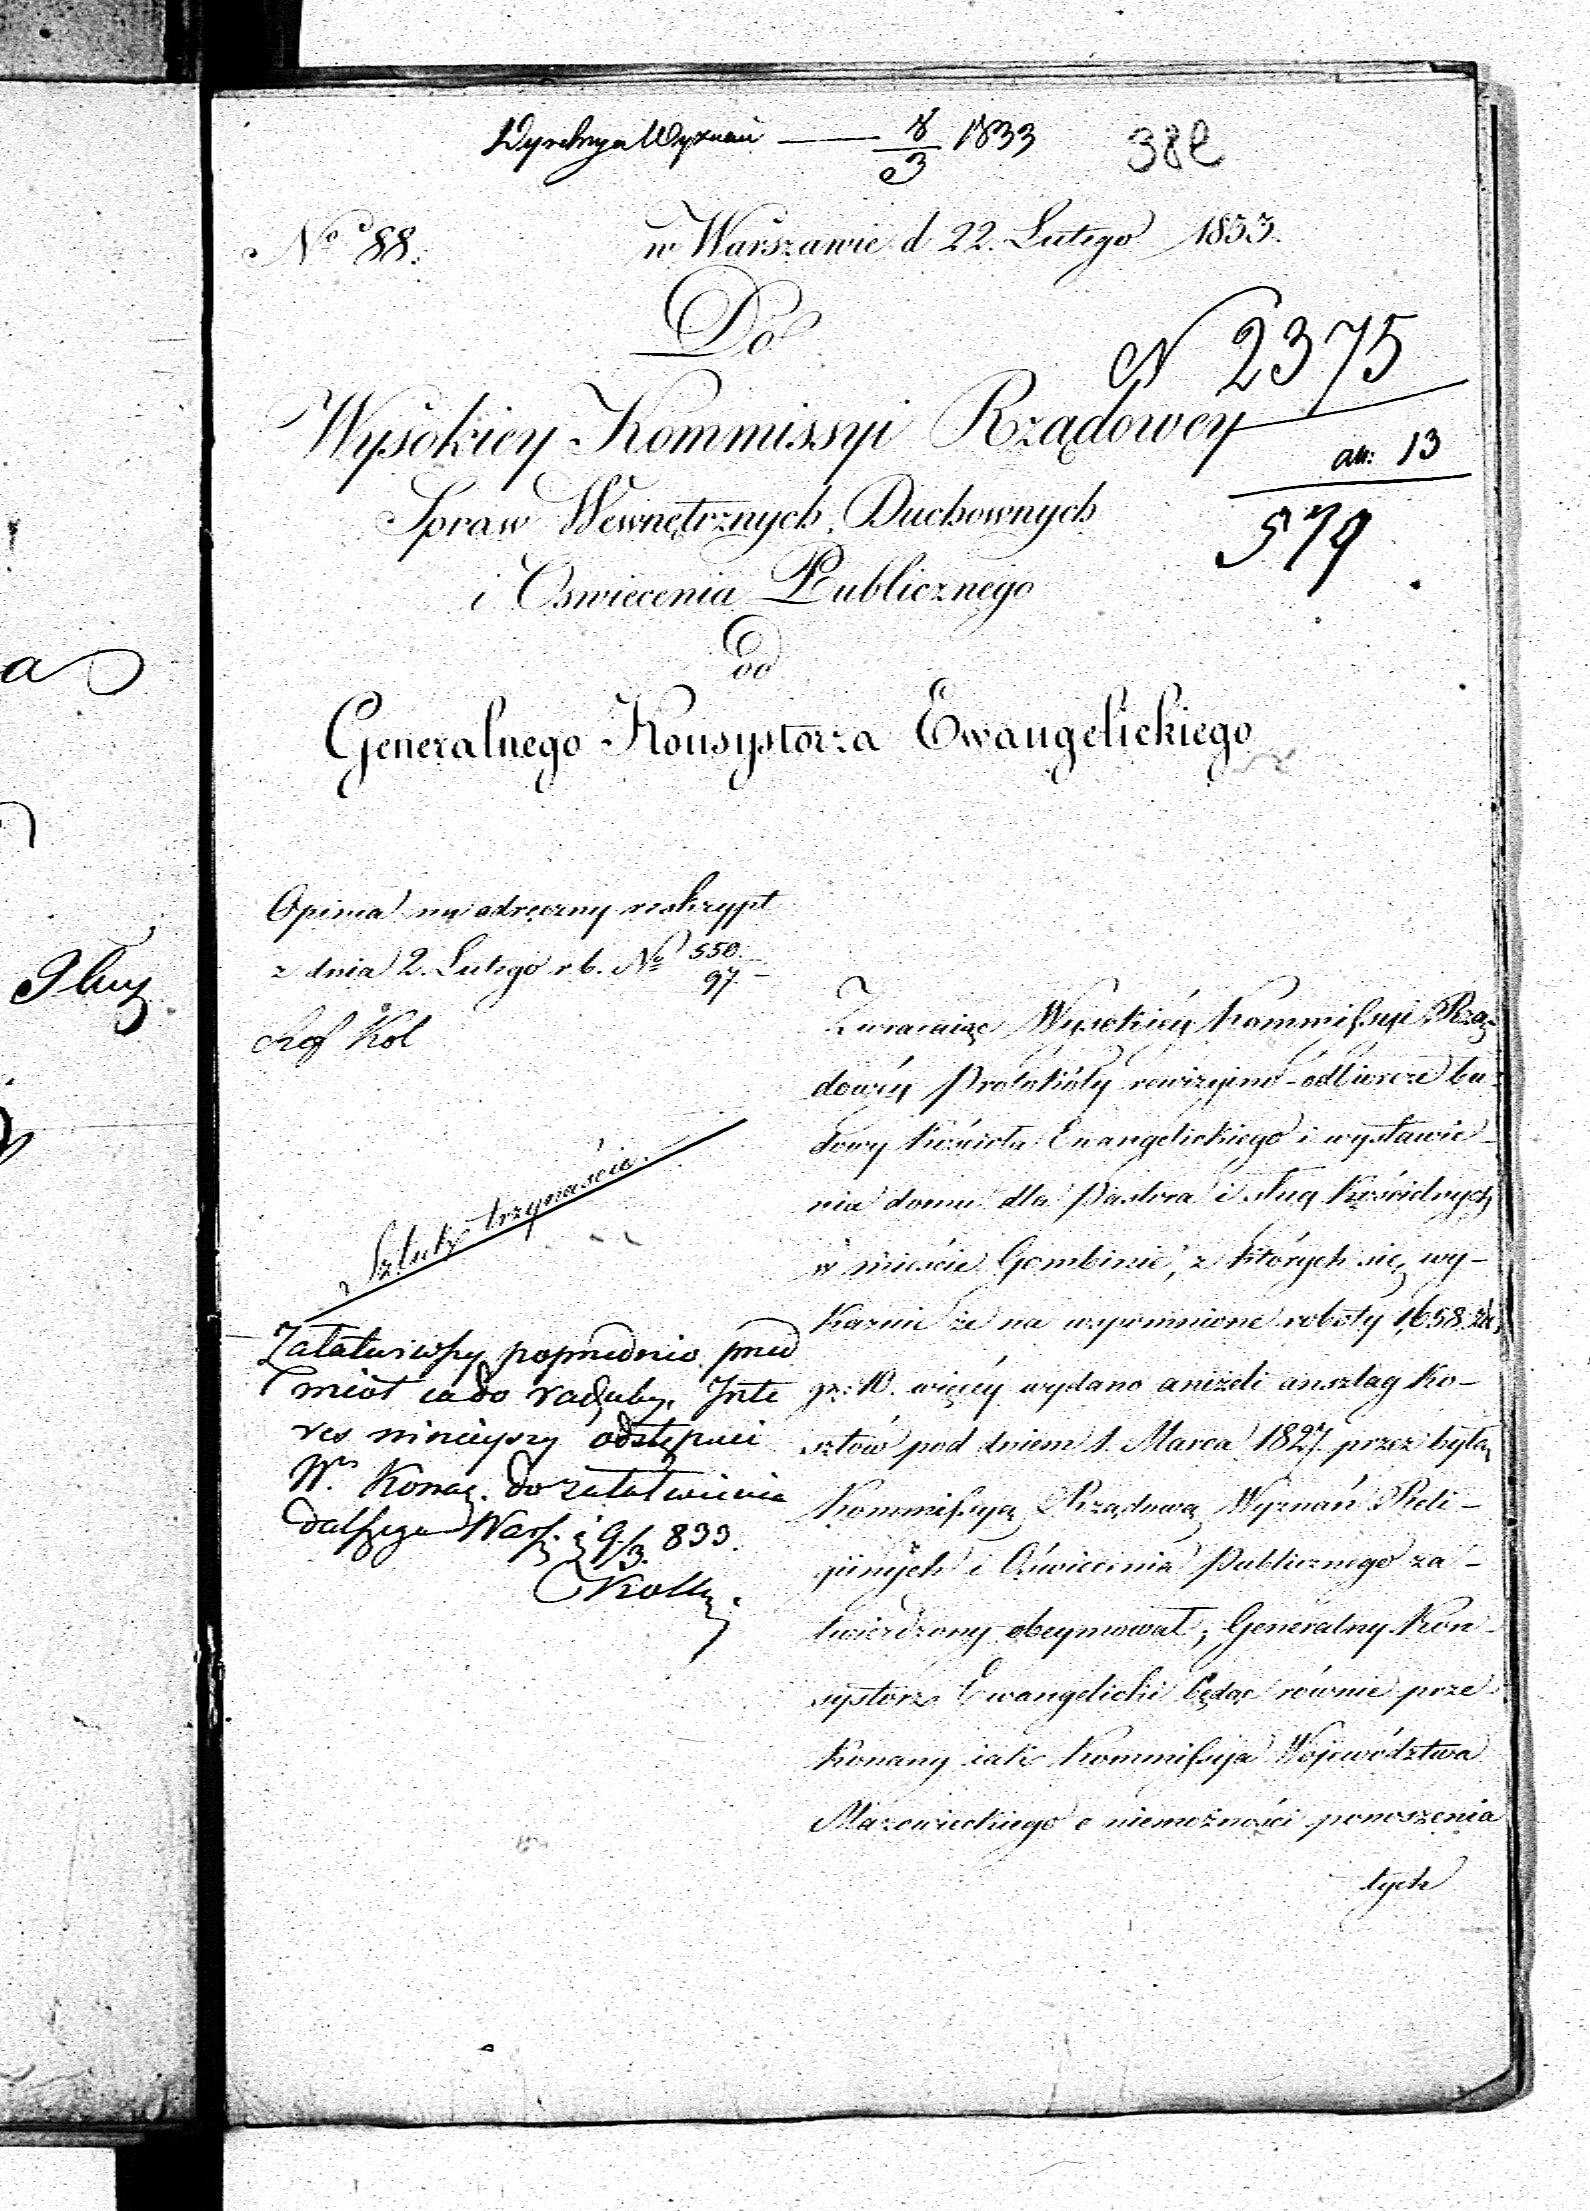 Dyrekcya Wyznań — 8/3 1833
38
No 88.
w Warszawie d 22. Lutego 1833.
Do
N 2375
Wysokiey Kommissyi Rządowey
an: 13
Spraw Wewnętrznych, Duchownych
579
i Oswiecenia Publicznego
Od
Generalnego Konsystorza Ewangelickiego
Opinia na odręczny reskrypt
z dnia 2. Lutego r. b. No 550/97.
Kol
Sztuk trzynaście.
Załatwiwszy poprzednio przed
miot
res ninieyszy odstępuie
Wu Konac. do załatwienia
dalszego Wars. d 9/3 833.
Zwracaiąc Wysokiéy Kommissyi Rzą-
dowéy Protokóły rewizyino-odbiorcze bu-
dowy Kościoła Ewangelickiego i wystawie-
nia domu dla Pastora i sług Kościelnych
w mieście Gombinie, z których się wy-
kazuie że na wspomnione roboty 1,658 Złp
gr: 10. więcéy wydano aniżeli anszlag ko-
sztów pod dniem 1. Marca 1827 przez byłą
Kommissyą Rządową Wyznań Reli-
giinych i Oświecenia Publicznego za-
twierdzony obeymował; Generalny Kon-
systorz Ewangelicki będąc równie prze
konany iak Kommissya Województwa
Mazowieckiego o niemożności ponoszenia
tych
a